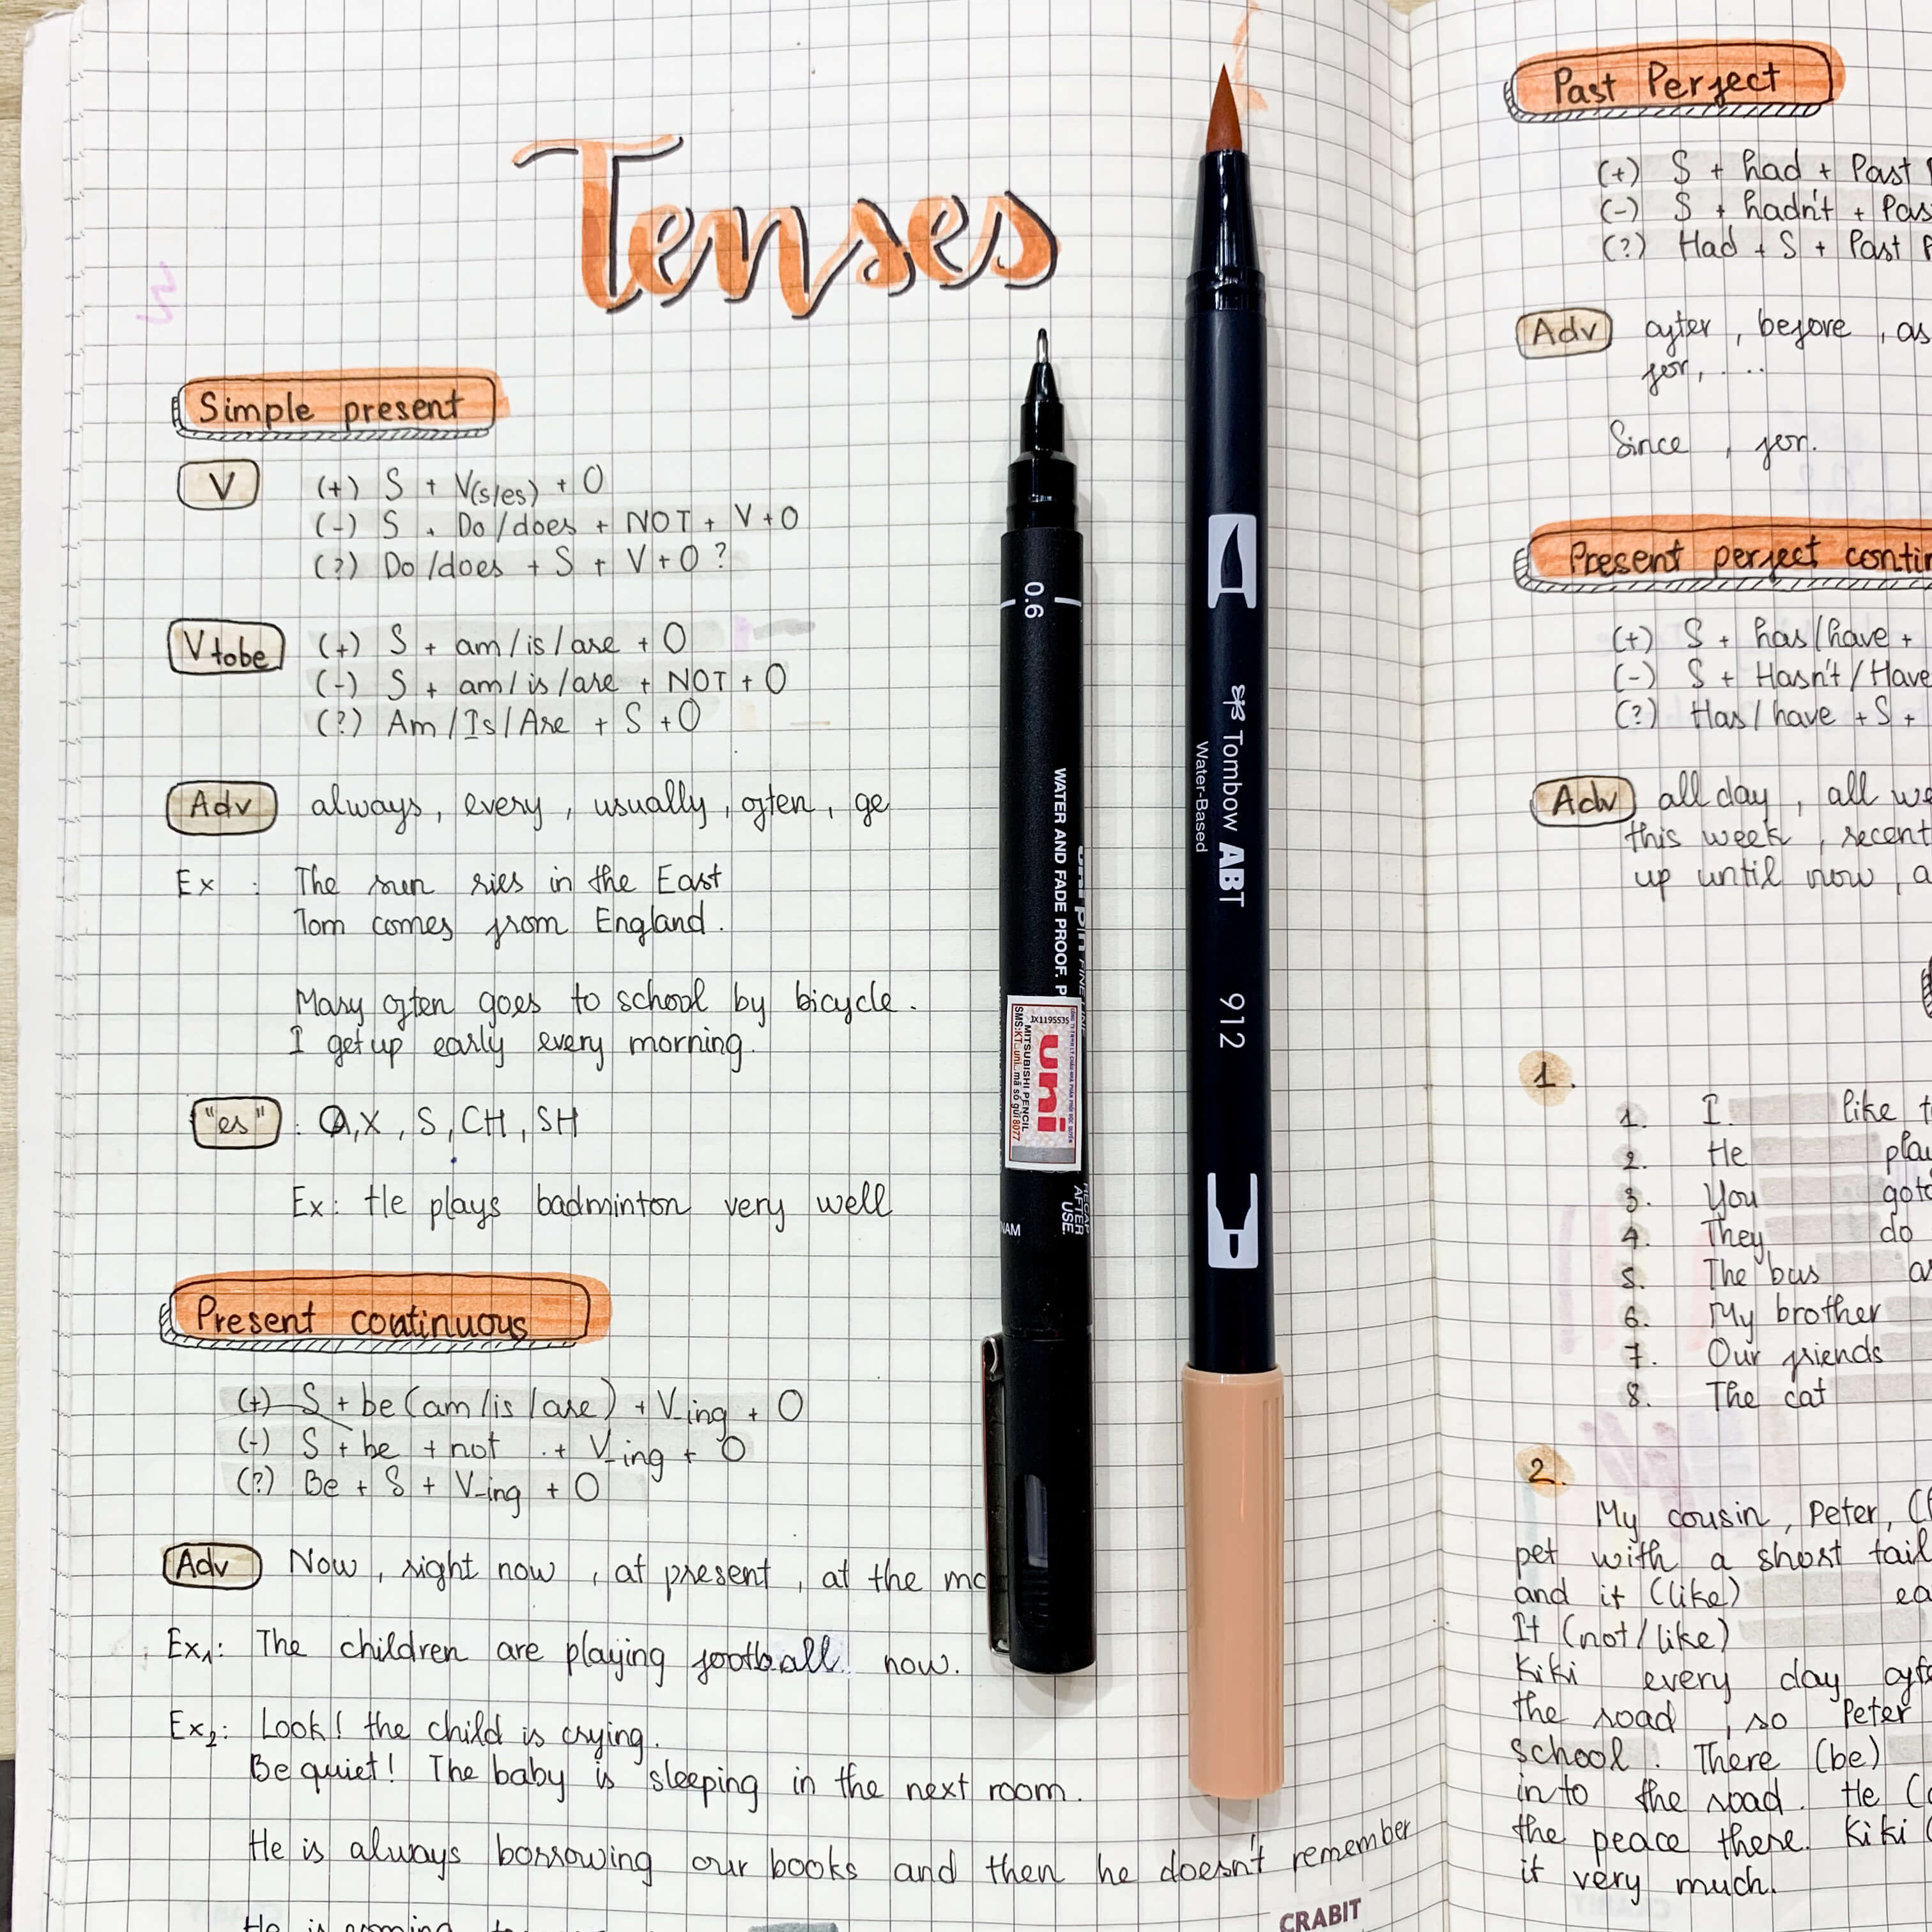 Tenses
Simple present
V (+) S + V(s/es) + O
(-) S + Do/does + NOT + V + O
(?) Do/does + S + V + O ?
V tobe (+) S + am/is/are + O
(-) S + am/is/are + NOT + O
(?) Am/Is/Are + S + O
Adv always, every, usually, often, ge
Ex : The sun ries in the East
Tom comes from England.
Mary often goes to school by bicycle.
I get up early every morning.
"es" : O, X, S, CH, SH
Ex: He plays badminton very well
Present continuous
(+) S + be (am/is/are) + V_ing + O
(-) S + be + not + V_ing + O
(?) Be + S + V-ing + O
Adv Now, right now, at present, at the mo
Ex1: The children are playing football now.
Ex2: Look! the child is crying.
Be quiet! The baby is sleeping in the next room.
He is always borrowing our books and then he doesn't remember
He is
CRABIT
0.6
WATER AND FADE PROOF. P
uni pin FINE LINE
JX1195535
uni
MITSUBISHI PENCIL
SMS:KT_uni_mã số gửi 8077
RECAP
AFTER
USE.
NAM
Tombow ABT 912
Water-Based
Past Perfect
(+) S + had + Past
(-) S + hadn't + Pas
(?) Had + S + Past
Adv after, before, as
for, ....
Since, for.
Present perfect contin
(+) S + has/have +
(-) S + Hasn't/Have
(?) Has/have + S +
Adv all day, all we
this week, recent
up until now, a
1.
1. I like t
2. He play
3. You goto
4. They do
5. The bus a
6. My brother
7. Our friends
8. The cat
2.
My cousin, Peter, (
pet with a short tail
and it (like) ea
It (not/like)
Kiki every day afte
the road, so Peter
school. There (be)
in to the road. He (
the peace there. Kiki (
it very much.